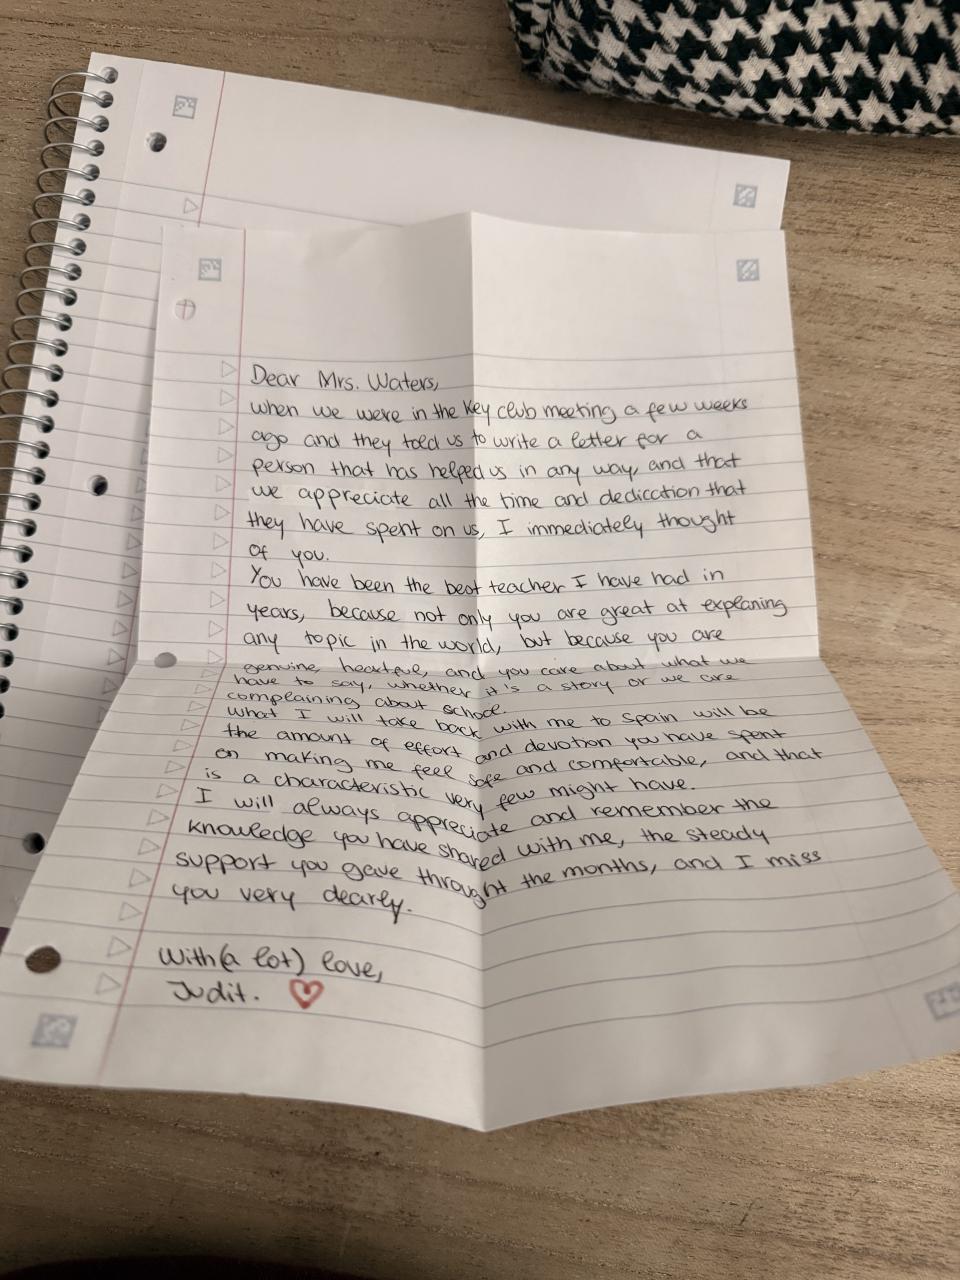 Dear Mrs. Waters,
when we were in the Key club meeting a few weeks
ago and they told us to write a letter for a
person that has helped us in any way, and that
we appreciate all the time and dedication that
they have spent on us, I immediately thought
of you.
You have been the best teacher I have had in
years, because not only you are great at explaning
any topic in the world, but because you are
genuine, heartful, and you care about what we
have to say, whether it's a story or we are
complaining about school.
What I will take back with me to Spain will be
the amount of effort and devotion you have spent
on making me feel safe and comfortable, and that
is a characteristic very few might have.
I will always appreciate and remember the
knowledge you have shared with me, the steady
support you gave throught the months, and I miss
you very dearly.
With (a lot) love,
Judit.